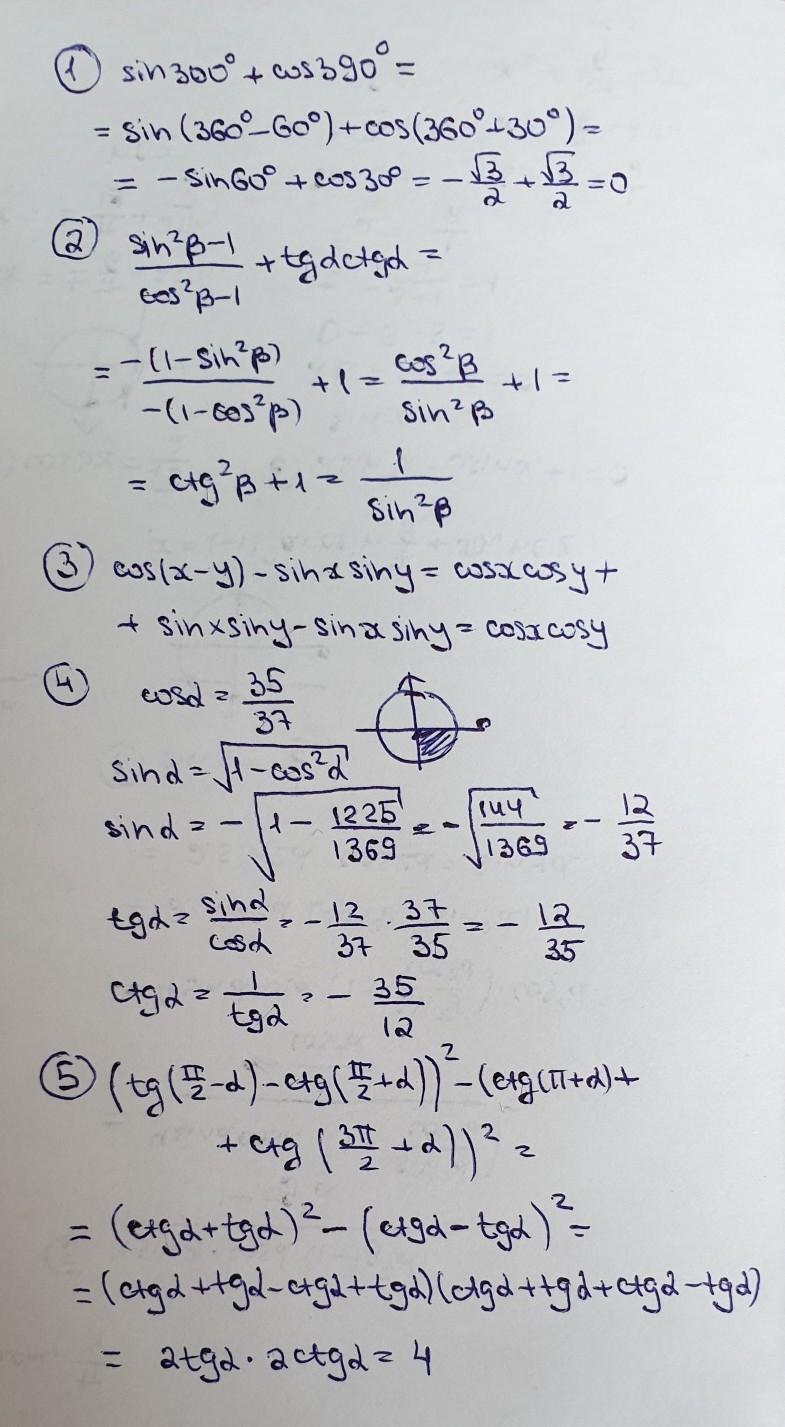 ① sin300° + cos390° =
= sin(360°-60°)+cos(360°+30°) =
= -sin60° + cos30° = -√3/2 + √3/2 = 0
② (sin²β-1)/(cos²β-1) + tgα ctgα =
= -(1-sin²β)/-(1-cos²β) + 1 = cos²β/sin²β + 1 =
= ctg²β + 1 = 1/sin²β
③ cos(x-y) - sinx siny = cosx cosy +
+ sinx siny - sinx siny = cosx cosy
④ cosα = 35/37
sinα = √(1-cos²α)
sinα = -√(1 - 1225/1369) = -√(144/1369) = - 12/37
tgα = sinα/cosα = - 12/37 · 37/35 = - 12/35
ctgα = 1/tgα = - 35/12
⑤ (tg(π/2-α) - ctg(π/2+α))² - (ctg(π+α) +
+ ctg(3π/2 + α))² =
= (ctgα + tgα)² - (ctgα - tgα)² =
= (ctgα + tgα - ctgα + tgα)(ctgα + tgα + ctgα - tgα)
= 2tgα · 2ctgα = 4